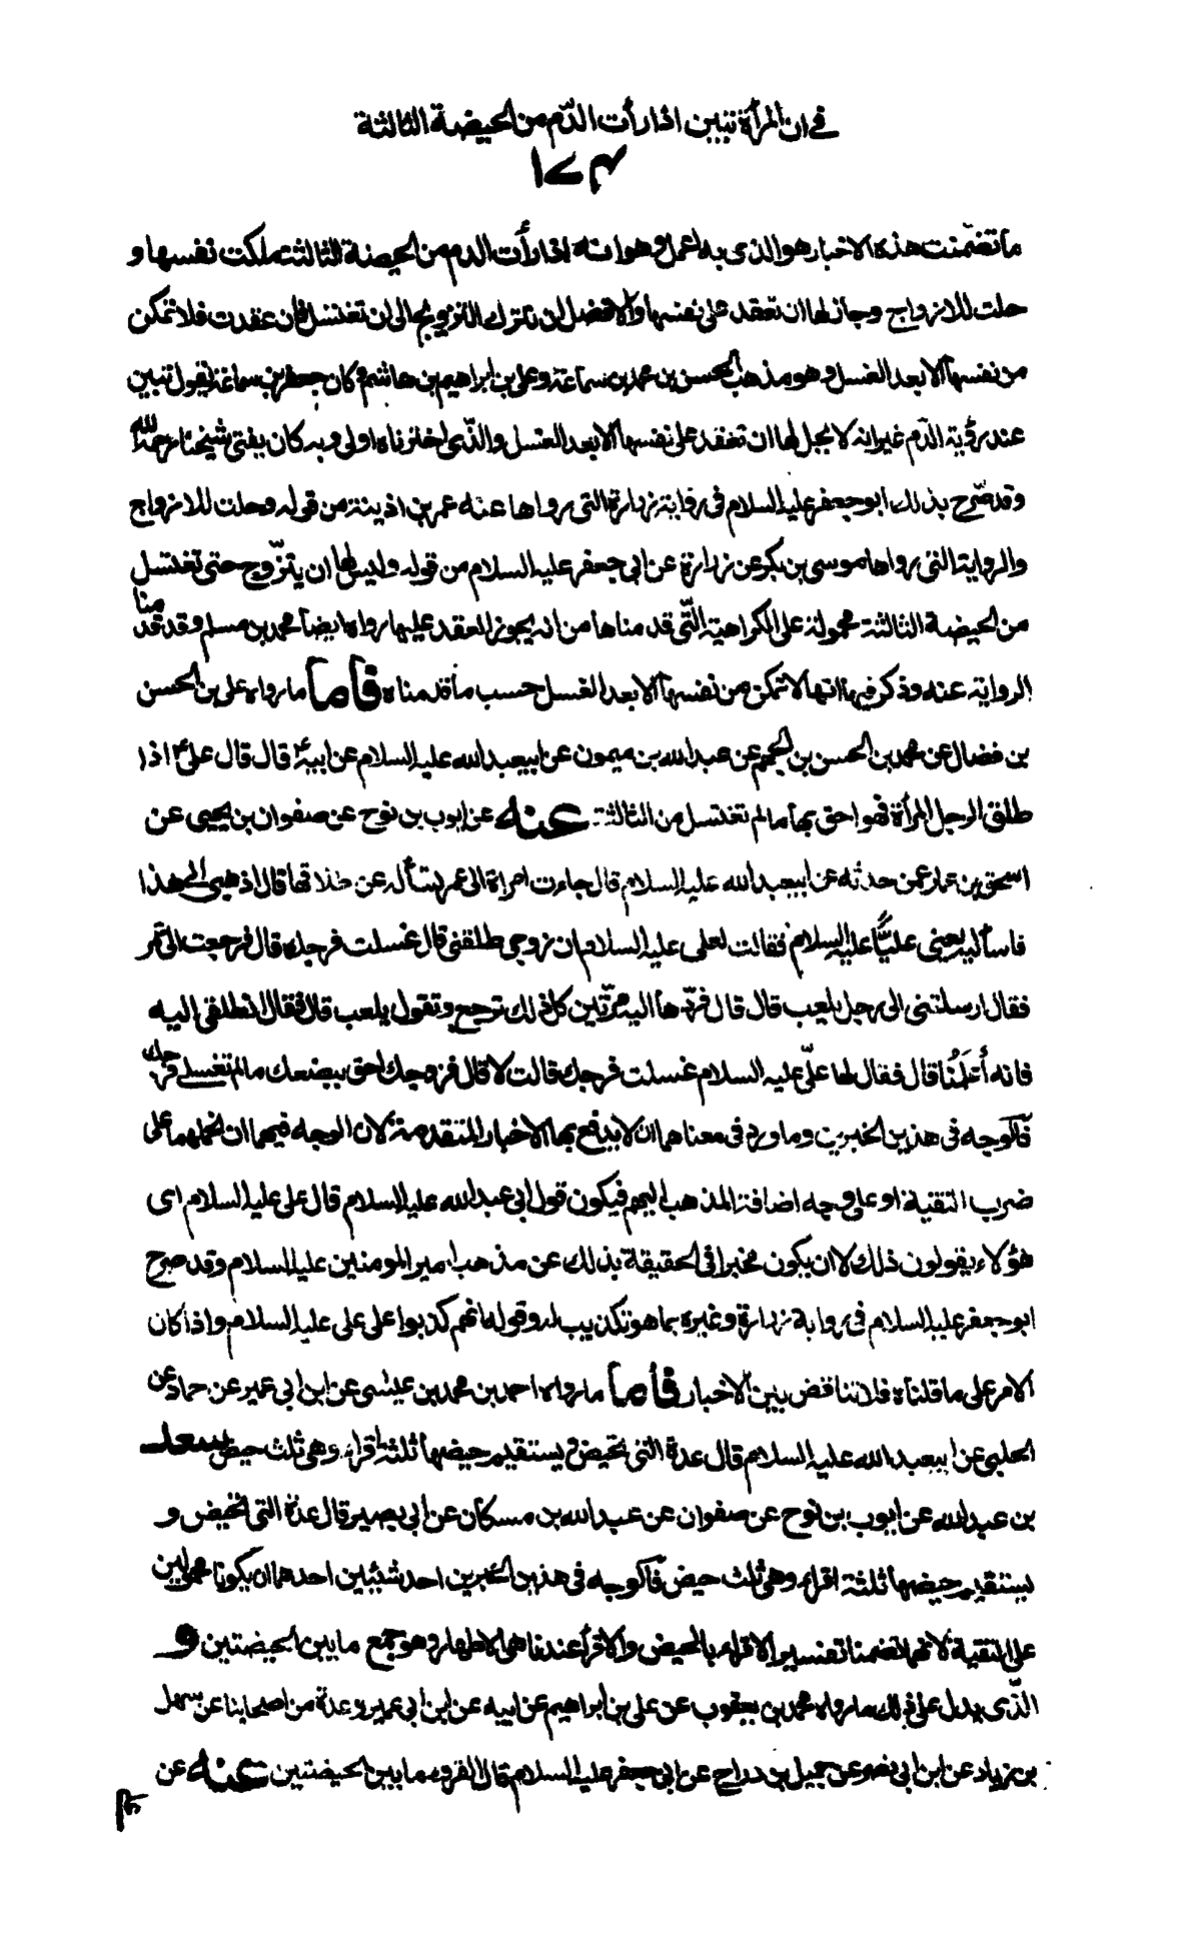 في ان المرأة تبين اذا رأت الدّم من الحيضة الثالثة
١٧٤
ما تضمّنت هذه الاخبار هو الذى به اعمل وهو انه اذا رأت الدم من الحيضة الثالثة ملكت نفسها و
حلت للازواج وجاز لها ان تعقد على نفسها والافضل ان تترك التزويج الى ان تغتسل فان عقدت فلا تمكن
من نفسها الا بعد الغسل وهو مذهب الحسن بن محمد بن سماعة وعلى بن ابراهيم بن هاشم وكان جعفر بن سماعة يقول تبين
عند رؤية الدّم غير انه لا يحل لها ان تعقد على نفسها الا بعد الغسل والّذى اخترناه اولى وبه كان يفتى شيخنا رحمه الله
وقد صّرح بذلك ابو جعفر عليه السلام فى رواية زرارة التى رواها عنه عمر بن اذينة من قوله وحلت للازواج
والرواية التى رواها موسى بن بكر عن زرارة عن ابى جعفر عليه السلام من قوله وليس لها ان يتزّوج حتى تغتسل
من الحيضة الثالثة محمولة على الكراهية الّتى قدمناها من انه يجوز العقد عليها رواه ايضا محمد بن مسلم وقد قدمنا
الرواية عنه وذكر فيها انها لا تمكن من نفسها الا بعد الغسل حسب ما قدمناه فأما ما رواه على بن الحسن
بن فضال عن محمد بن الحسن بن الجهم عن عبد الله بن ميمون عن ابيعبد الله عليه السلام عن ابيه ع قال قال على ع اذا
طلق الرجل المرأة فهو احق بها ما لم تغتسل من الثالثة عنه عن ايوب بن نوح عن صفوان بن يحيى عن
اسحق بن عمار عمن حدثه عن ابيعبد الله عليه السلام قال جاءت امراة الى عمر تسأله عن طلاقها قال اذهبى الى هذا
فاسأليه يعنى عليّاً عليه السلام فقالت لعلى عليه السلام ان زوجى طلقنى قال غسلت فرجك قال فرجعت الى عمر
فقال ارسلتنى الى رجل يلعب قال قال فردّها اليه مرّتين كل ذلك ترجع وتقول يلعب قال فقال انطلقى اليه
فانه أَعلَمُنا قال فقال لها علّى عليه السلام غسلت فرجك قالت لا قال فزوجك احق ببضعك ما لم تغسلى فرجك
فالوجه فى هذين الخبرين وما ورد فى معناهما ان لا يدفع بهما الاخبار المتقدمة لان الوجه فيهما ان نحملهما على
ضرب التقية او على وجه اضافة المذهب اليهم فيكون قول ابى عبد الله عليه السلام قال على عليه السلام اى
هؤلاء يقولون ذلك لا ان يكون مخبرا فى الحقيقة بذلك عن مذهب امير المومنين عليه السلام وقد صرح
ابو جعفر عليه السلام فى رواية زرارة وغيره بما هو تكذيب له وقوله انهم كذبوا على على عليه السلام واذا كان
الامر على ما قلناه فلا تناقض بين الاخبار فأما ما رواه احمد بن محمد بن عيسى عن ابن ابى عمير عن حماد عن
الحلبى عن ابيعبد الله عليه السلام قال عدة التى تحيض ويستقيم حيضها ثلثة اقراء وهى ثلث حيض سعد
بن عبد الله عن ايوب بن نوح عن صفوان عن عبد الله بن مسكان عن ابى بصير قال عدة التى تحيض و
يستقيم حيضها ثلثة اقراء وهى ثلث حيض فالوجه فى هذين الخبرين احد شيئين احدهما ان يكونا محمولين
على التقية لانهما تضمنا تفسير الاقراء بالحيض والاقرأ عندنا هى الاطهار وهو جمع ما بين الحيضتين و
الّذى يدل على ذلك ما رواه محمد بن يعقوب عن على بن ابراهيم عن ابيه عن ابن ابى عمير وعدة من اصحابنا عن سهل
بن زياد عن ابن ابى نصر عن جميل بن دراج عن ابى جعفر عليه السلام قال القروء ما بين الحيضتين عنه عن